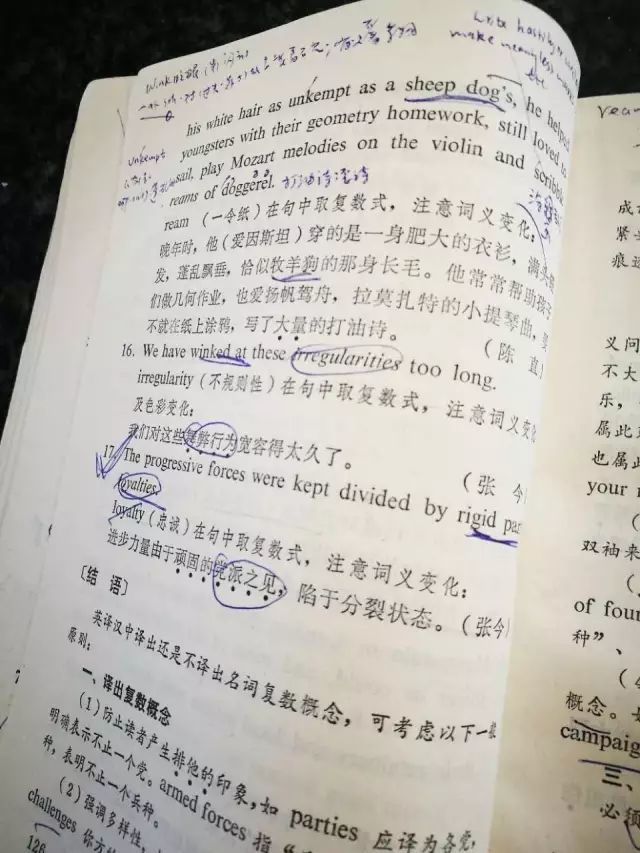 Wink眨眼
write hastily
make meaningless
the
unkempt
his white hair as unkempt as a sheep dog's, he helped
youngsters with their geometry homework, still loved to
sail, play Mozart melodies on the violin and scribble
reams of doggerel. 打油诗
ream (一令纸) 在句中取复数式, 注意词义变化:
晚年时, 他 (爱因斯坦) 穿的是一身肥大的衣衫, 满头
发, 蓬乱飘垂, 恰似牧羊狗的那身长毛。他常常帮助孩子
们做几何作业, 也爱扬帆驾舟, 拉莫扎特的小提琴曲,
不就在纸上涂鸦, 写了大量的打油诗。
(陈 直)
16. We have winked at these irregularities too long.
irregularity (不规则性) 在句中取复数式, 注意词义变化
及色彩变化:
我们对这些舞弊行为宽容得太久了。
(张 今)
17. The progressive forces were kept divided by rigid par
loyalties.
loyalty (忠诚) 在句中取复数式, 注意词义变化:
进步力量由于顽固的党派之见, 陷于分裂状态。(张今)
〔结 语〕
英译汉中译出还是不译出名词复数概念, 可考虑以下一般
原则:
一、译出复数概念
(1) 防止读者产生排他的印象, 如 parties 应译为各党,
明确表示不止一个党。armed forces 指“
种, 表明不止一个兵种。
(2) 强调多样性,
challenges 你方的
126
year
成
紧
痕
义问
不大
乐,
属此
也属此
your
双袖来
of four
种”、
概念。
campaig
三、
必须